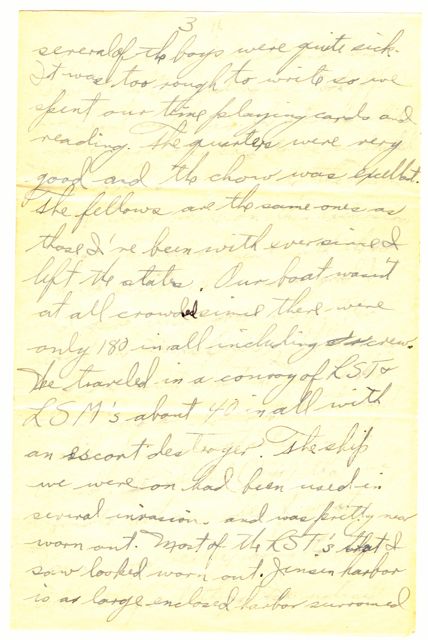 3
several of the boys were quite sick.
It was too rough to write so we
spent our time playing cards and
reading. The quarters were very
good and the chow was excellent.
The fellows are the same ones as
those I've been with ever since I
left the states. Our boat wasn't
at all crowded since there were
only 180 in all including crew.
We traveled in a convoy of LST &
LSM's about 40 in all with
an escort destroyer. The ship
we were on had been used in
several invasion. and was pretty near
worn out. Most of the LST's that I
saw looked worn out. Jinsen harbor
is a large enclosed harbor surromed